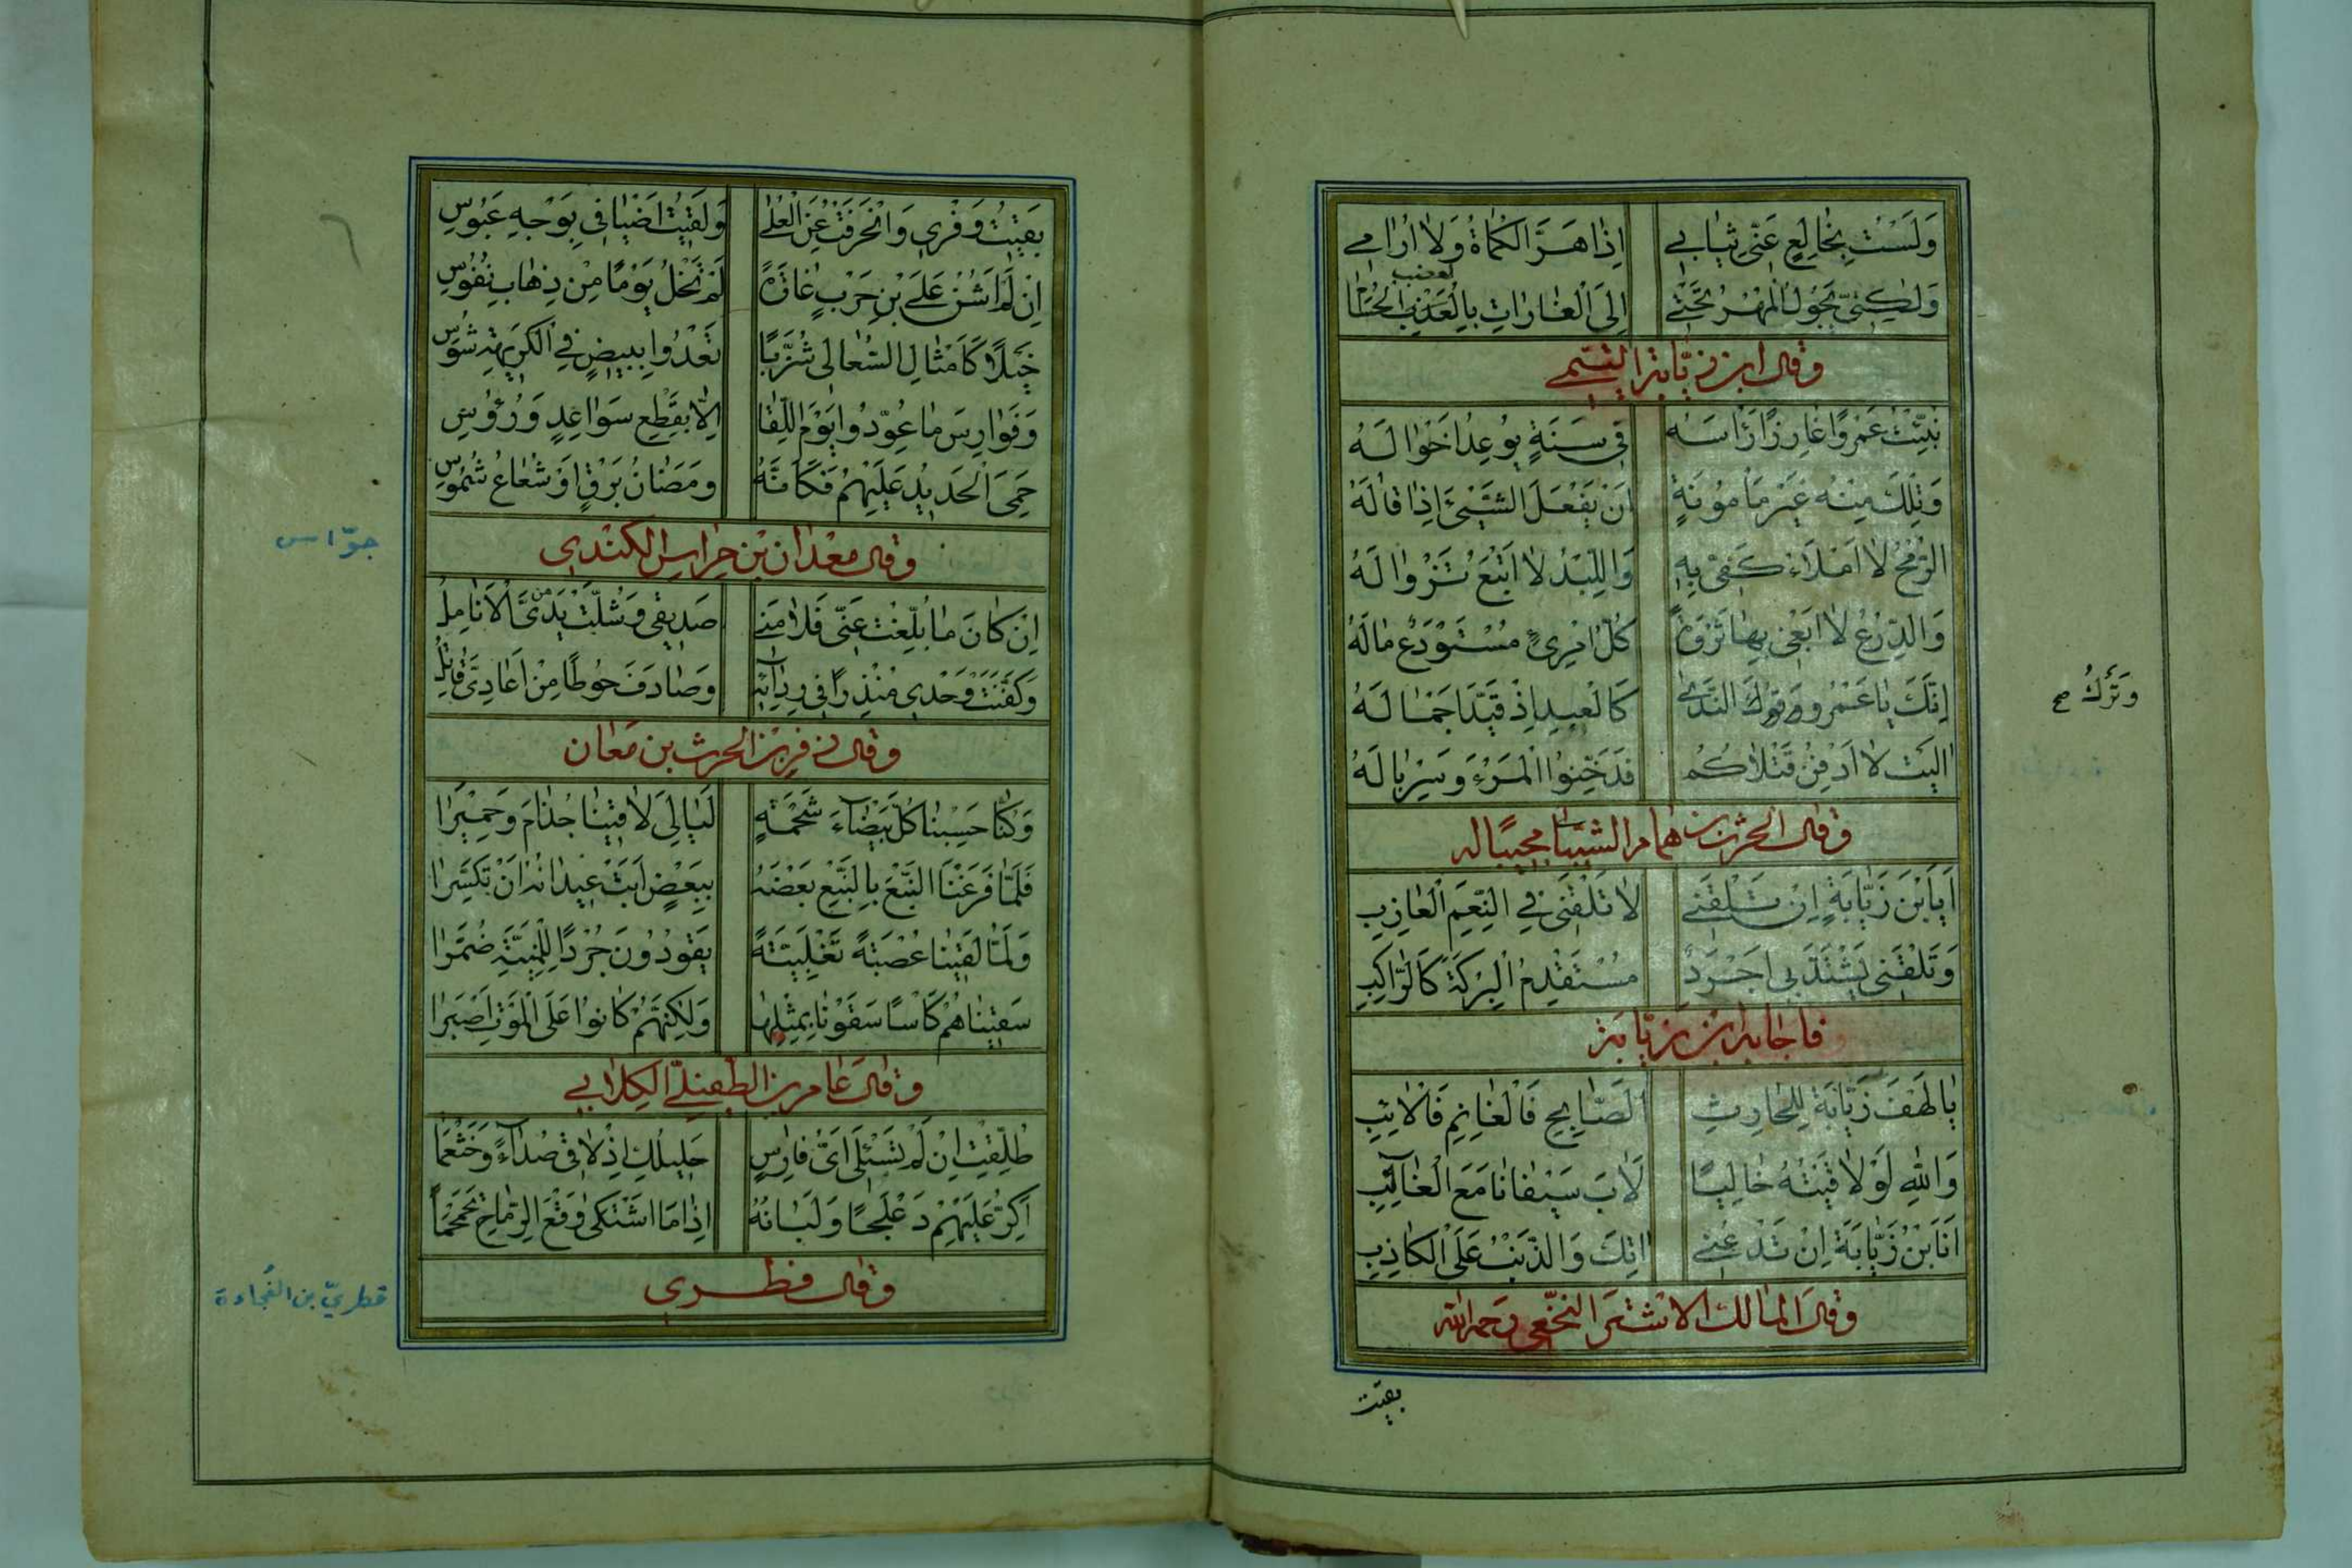 وَلَسْتُ بِخَالِعٍ عَنّي ثِيَابي إِذَا هَرَّ الْكُمَاةُ وَلَا اُرَامي
وَلٰكِنّي يَجُولُ الْمُهْرُ تَحْتي إِلَى الْغَارَاتِ بِالْعَذْبِ
وقال ابن زيّابة التيمي
نُبِّئْتُ عَمْرًا غَارِزًا رَاْسَهُ في سَنَةٍ يُوعِدُ اَخْوَالَهُ
وَتِلْكَ مِنْهُ غَيْرُ مَاْمُونَةٍ اَنْ يَفْعَلَ الشَّيْئَ اِذَا قَالَهُ
الرُّمْحُ لَا اَمْلَاءُ كَفّي بِهِ وَاللِّبْدُ لَا اَتْبَعُ تَزْوَالَهُ
وَالدِّرْعُ لَا اَبْغي بِهَا ثَرْوَةً كُلُّ امْرِئٍ مُسْتَوْدَعٌ مَالَهُ
اِنَّكَ يَا عَمْرُو وَ النَّدَى كَالْعَبْدِ اِذْ قَيَّدَ اَجْمَالَهُ
وَتَرْكُ صح
اٰلَيْتُ لَا اَدْفِنُ قَتْلَاكُمْ فَدَخِّنُوا الْمَرْءَ وَسِرْبَالَهُ
وقال الحرث بن همام الشيباني مجيبًا له
اَيَا بْنَ زَيَّابَةَ اِنْ تَلْقَني لَا تَلْقَني في النَّعَمِ الْعَازِبِ
وَتَلْقَني يَشْتَدُّ بي اَجْرَدُ مُسْتَقْدِمُ الْبِرْكَةِ كَالرَّاكِبِ
فاجابه ابن زيّابة
يَا لَهْفَ زَيَّابَةَ لِلْحَارِثِ الصَّابِحِ فَالْغَانِمِ فَالْاٰئِبِ
وَاللهِ لَوْ لَاقَيْتُهُ خَالِيًا لَاٰبَ سَيْفَانَا مَعَ الْغَالِبِ
اَنَا بْنُ زَيَّابَةَ اِنْ تَدْعُني اٰتِكَ وَالظَّنُّ عَلَى الْكَاذِبِ
وقال المالك الاشتر النخعي رحمه الله
بقيت
بَقَيْتُ وَفْري وَانْحَرَفْتُ عَنِ الْعُلَى وَلَقيتُ اَضْيَافي بِوَجْهِ عَبُوسِ
اِنْ لَمْ اَشُنَّ عَلَى بْنِ حَرْبٍ غَارَةً لَمْ تَخْلُ يَوْمًا مِنْ ذِهَابِ نُفُوسِ
خَيْلًا كَاَمْثَالِ السَّعَالى شُزَّبًا تَغْدُوا بِبيضٍ في الْكَريهَةِ شُوسِ
وَفَوَارِسَ مَا عُوِّدُوا يَوْمَ اللِّقَا اِلَّا بِقَطْعِ سَوَاعِدٍ وَرُؤُسِ
حَمِيَ الْحَديدُ عَلَيْهِمُ فَكَاَنَّهُ وَمَضَانُ بَرْقٍ اَوْ شُعَاعُ شُمُوسِ
وقال معدان بن جراس الكندي
جوّاس
اِنْ كَانَ مَا بُلِّغْتَ عَنّي فَلَامَني صَديقي وَشُلَّتْ مِنْ يَدَيَّ الْاَنَامِلُ
وَكَفَّنْتُ وَحْدي مُنْذِرًا في رِدَائِهِ وَصَادَفَ حَوْطًا مِنْ اَعَادِيَّ قَاتِلُ
وقال زفر بن الحرث بن معان
وَكُنَّا حَسِبْنَا كُلَّ بَيْضَاءَ شَحْمَةٍ لَيَالِيَ لَاقَيْنَا جُذَامَ وَحِمْيَرَا
فَلَمَّا قَرَعْنَا النَّبْعَ بِالنَّبْعِ بَعْضَهُ بِبَعْضٍ اَبَتْ عيدَانُهُ اَنْ تَكَسَّرَا
وَلَمَّا لَقينَا عُصْبَةً تَغْلِبِيَّةً يَقُودُونَ جُرْدًا لِلْمَنِيَّةِ ضُمَّرَا
سَقَيْنَاهُمُ كَاْسًا سَقَوْنَا بِمِثْلِهَا وَلٰكِنَّهُمْ كَانُوا عَلَى الْمَوْتِ اَصْبَرَا
وقال عامر بن الطفيل الكلابي
طُلِّقْتِ اِنْ لَمْ تَسْئَلي اَيُّ فَارِسٍ حَليلُكِ اِذْ لَاقى صُدَاءً وَخَثْعَمَا
اَكُرُّ عَلَيْهِمْ دَعْلَجًا وَلَبَانُهُ اِذَا مَا اشْتَكى وَقْعَ الرِّمَاحِ تَحَمْحَمَا
وقال قطري
قطريّ بن الفُجاءة